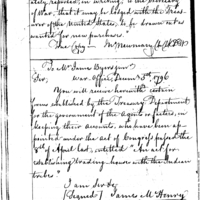 ately reported, in writing, to the Secretary
of War, that it may be lodged with the Treas-
urer of the United States, to be drawn as
wanted for new purchases."
True Copy
To Mr. Byers Gent.
Sir, War Office, Decem 3d, 1796
You will receive herewith certain
forms established by the Treasury Department
for the government of the Agents or factors, in
keeping their accounts, who have been ap-
pointed under the act of Congress passed the
18th of April last, entitled "An act for
establishing trading houses with the Indian
tribes."
I am Sir &c
(Signed) James McHenry